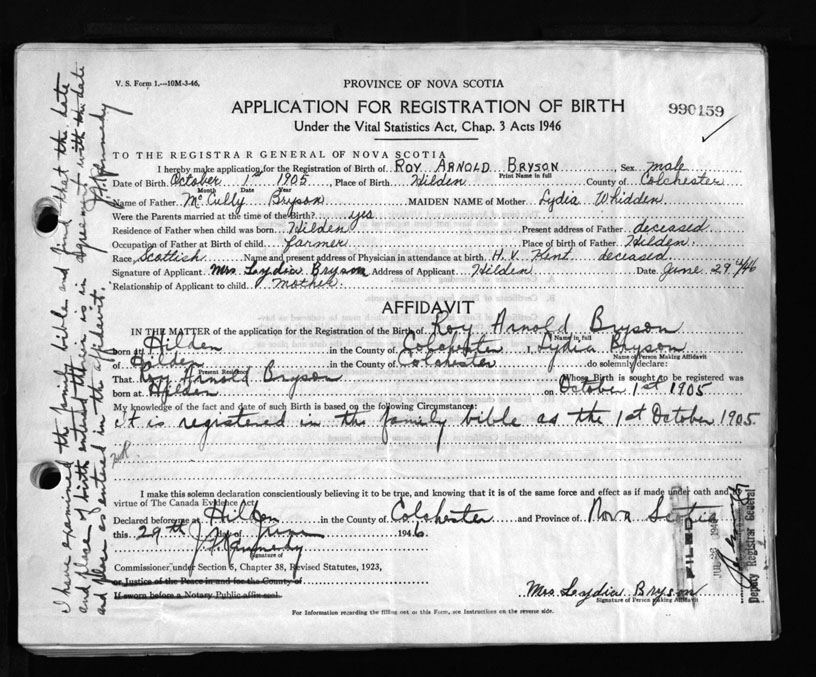 V. S. Form 1.—10M-3-46.
PROVINCE OF NOVA SCOTIA
APPLICATION FOR REGISTRATION OF BIRTH
990159
Under the Vital Statistics Act, Chap. 3 Acts 1946
TO THE REGISTRAR GENERAL OF NOVA SCOTIA
I hereby make application for the Registration of Birth of ROY ARNOLD BRYSON, Sex male
Print Name in full
Date of Birth October 1st 1905, Place of Birth Hilden County of Colchester
Month Date Year
Name of Father McCully Bryson MAIDEN NAME of Mother Lydia Whidden
Were the Parents married at the time of the Birth? yes
Residence of Father when child was born Hilden Present address of Father deceased
Occupation of Father at Birth of child farmer Place of birth of Father Hilden.
Race Scottish Name and present address of Physician in attendance at birth H. V. Kent deceased
Signature of Applicant Mrs. Lydia Bryson Address of Applicant Hilden Date June 29th/46
Relationship of Applicant to child mother.
AFFIDAVIT
IN THE MATTER of the application for the Registration of the Birth of Roy Arnold Bryson
Name in full
born at Hilden in the County of Colchester I, Lydia Bryson
Name of Person Making Affidavit
of Hilden in the County of Colchester do solemnly declare:
Present Residence
That Roy Arnold Bryson Whose Birth is sought to be registered was
born at Hilden on October 1st 1905
My knowledge of the fact and date of such Birth is based on the following Circumstances:
It is registered in the family bible as the 1st October 1905.
I make this solemn declaration conscientiously believing it to be true, and knowing that it is of the same force and effect as if made under oath and by
virtue of The Canada Evidence Act.
Declared before me at Hilden in the County of Colchester and Province of Nova Scotia
this 29th day of June 1946
J. Kennedy
Signature of
Commissioner under Section 5, Chapter 38, Revised Statutes, 1923,
or Justice of the Peace in and for the County of
If sworn before a Notary Public affix seal.
Mrs Lydia Bryson
Signature of Person Making Affidavit
For Information regarding the filling out of this Form, see Instructions on the reverse side.
I have examined the family bible and find that the date
and place of birth entered therein is in agreement with the date
and place as entered in the affidavit.
Kennedy
FILED
Deputy Registrar General